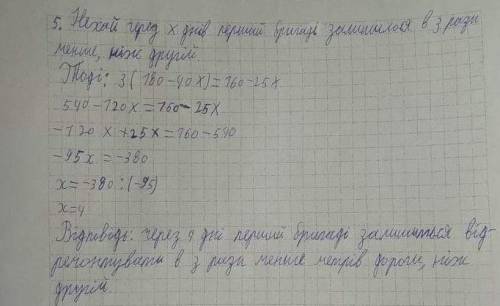 5. Нехай через х днів першій бригаді залишилося в 3 рази
менше, ніж другій.
Тоді: 3(180-40х)=160-25х
540-120х=160-25х
-120х+25х=160-540
-95х=-380
х=-380:(-95)
х=4
Відповідь: через 4 дні першій бригаді залишиться від-
ремонтувати в 3 рази менше метрів дороги, ніж
другій